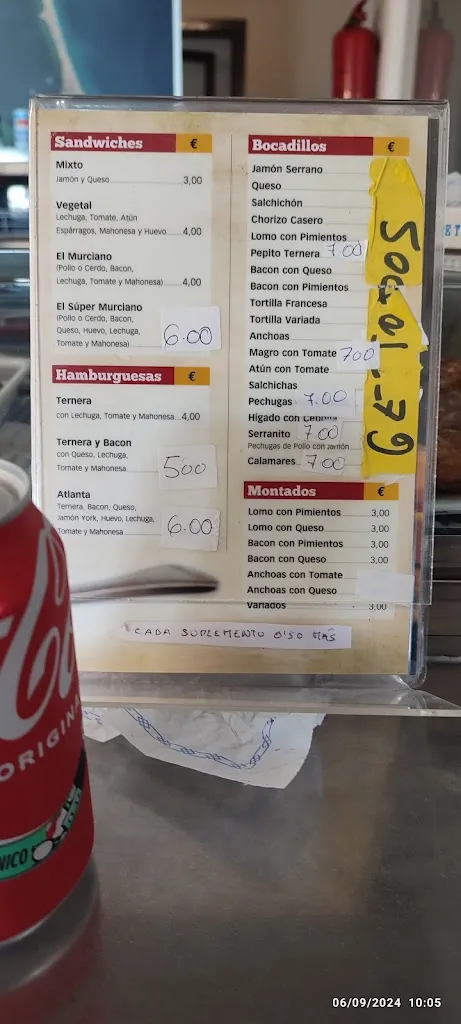 Sandwiches €
Mixto
Jamón y Queso 3,00
Vegetal
Lechuga, Tomate, Atún
Espárragos, Mahonesa y Huevo 4,00
El Murciano
(Pollo o Cerdo, Bacon,
Lechuga, Tomate y Mahonesa) 4,00
El Súper Murciano
(Pollo o Cerdo, Bacon,
Queso, Huevo, Lechuga,
Tomate y Mahonesa) 6.00
Hamburguesas €
Ternera
con Lechuga, Tomate y Mahonesa 4,00
Ternera y Bacon
con Queso, Lechuga,
Tomate y Mahonesa 500
Atlanta
Ternera, Bacon, Queso,
Jamón York, Huevo, Lechuga,
Tomate y Mahonesa 6.00
Bocadillos €
Jamón Serrano
Queso
Salchichón
Chorizo Casero
Lomo con Pimientos
Pepito Ternera 7.00
Bacon con Queso
Bacon con Pimientos
Tortilla Francesa
Tortilla Variada
Anchoas
Magro con Tomate 700
Atún con Tomate
Salchichas
Pechugas 7.00
Hígado con Cebolla
Serranito 7.00
Pechugas de Pollo con Jamón
Calamares 7.00
Montados €
Lomo con Pimientos 3,00
Lomo con Queso 3,00
Bacon con Pimientos 3,00
Bacon con Queso 3,00
Anchoas con Tomate
Anchoas con Queso
Variados 3,00
CADA SUPLEMENTO 0'50 MAS
ORIGINA
NICO
06/09/2024 10:05